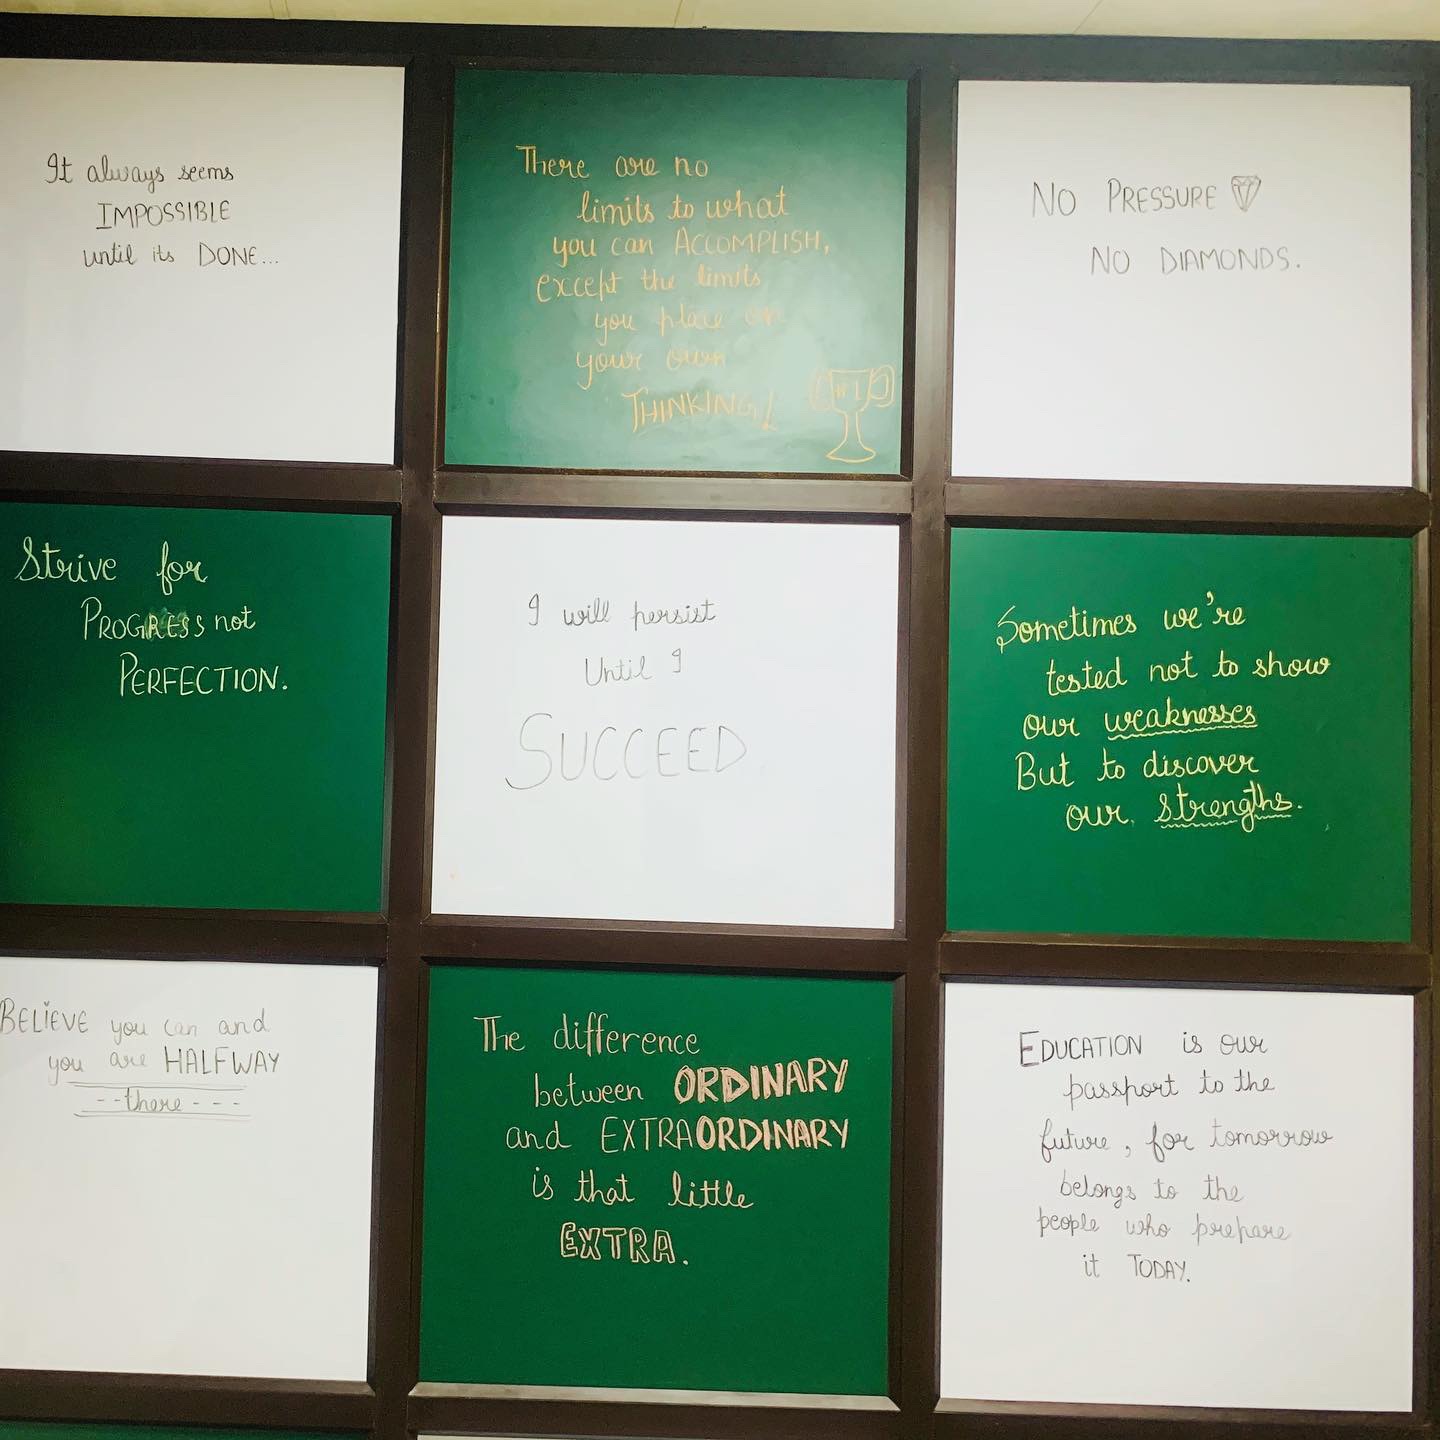 It always seems
IMPOSSIBLE
until its DONE...
There are no
limits to what
you can ACCOMPLISH,
except the limits
you place on
your own
THINKING!
#1
NO PRESSURE
NO DIAMONDS.
Strive for
PROGRESS not
PERFECTION.
I will persist
Until I
SUCCEED
Sometimes we're
tested not to show
our weaknesses
But to discover
our. strengths.
BELIEVE you can and
you are HALFWAY
--there---
The difference
between ORDINARY
and EXTRAORDINARY
is that little
EXTRA.
EDUCATION is our
passport to the
future, for tomorrow
belongs to the
people who prepare
it TODAY.